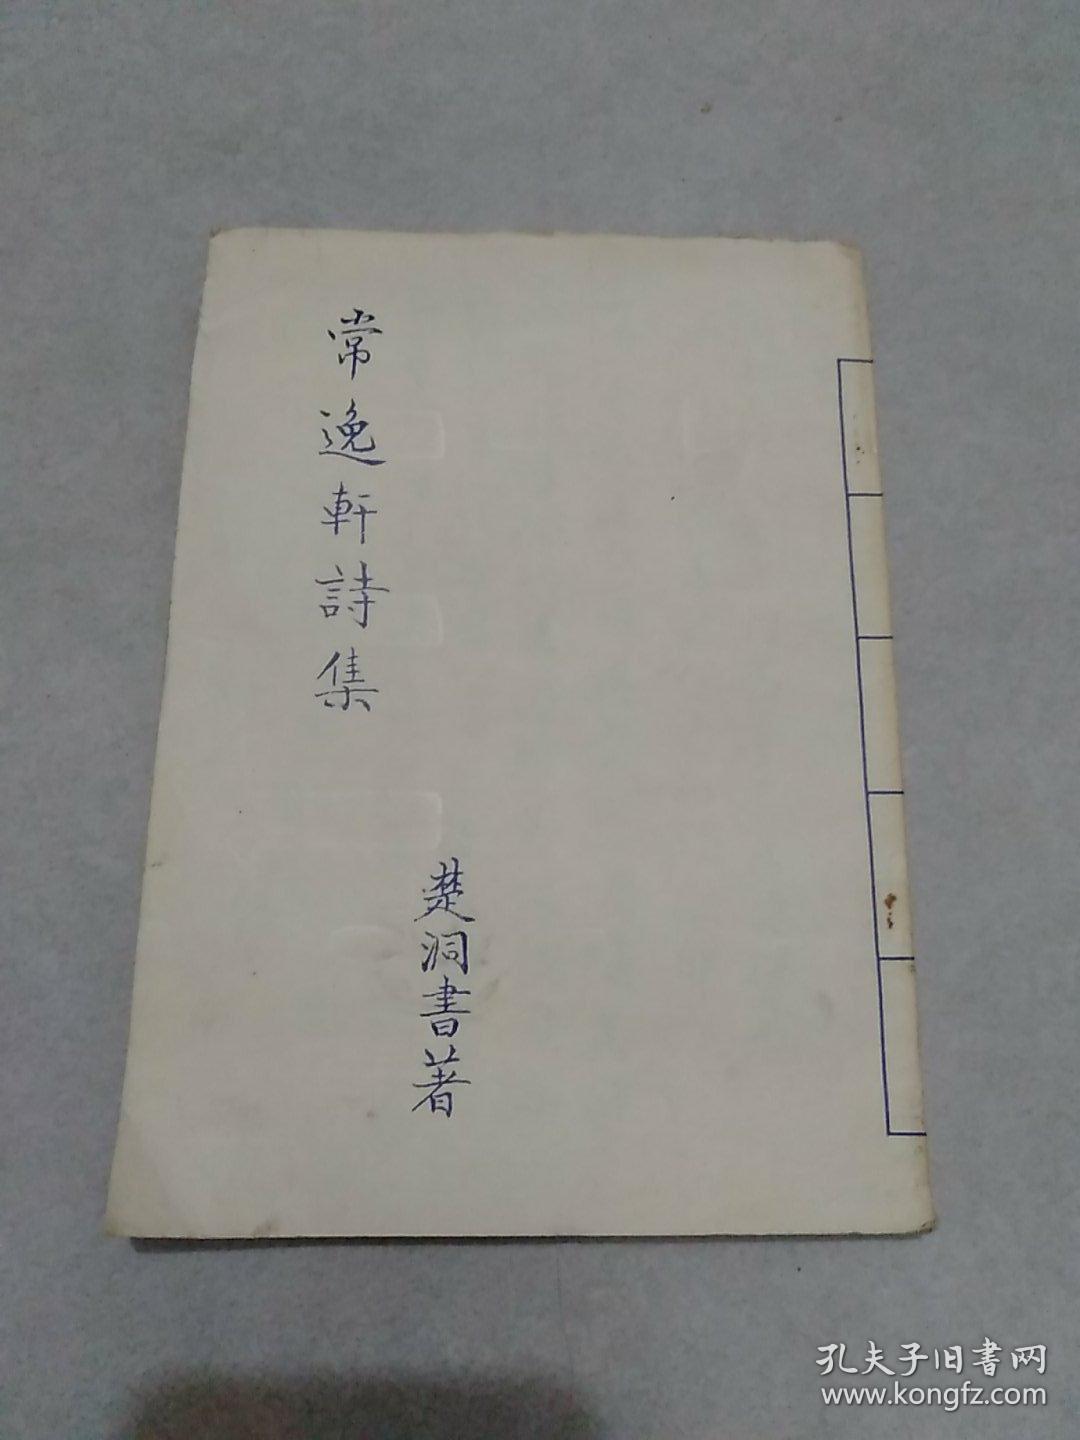 常逸軒詩集
楚洞書著
孔夫子旧書网
www.kongfz.com